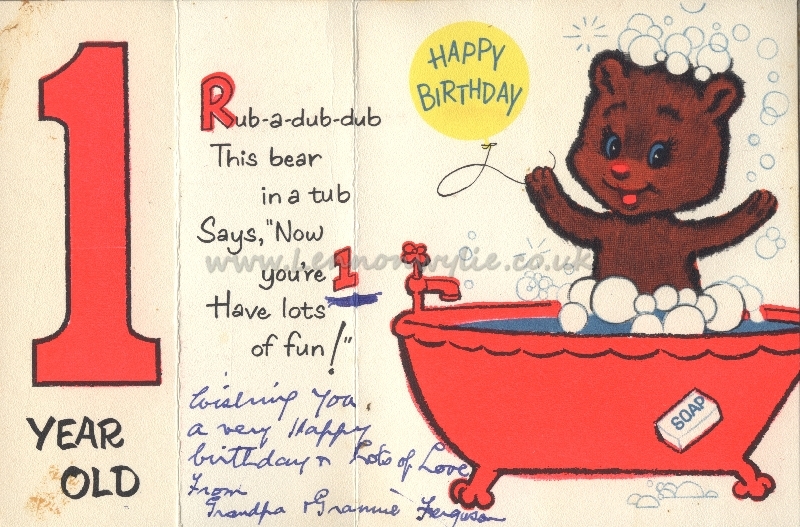 1
YEAR
OLD
Rub-a-dub-dub
This bear
in a tub
Says, "Now
you're 1
Have lots
of fun!"
Wishing You
a very Happy
birthday & Lots of Love
From
Grandpa & Grannie Ferguson
HAPPY
BIRTHDAY
SOAP
www.Lennonwylie.co.uk